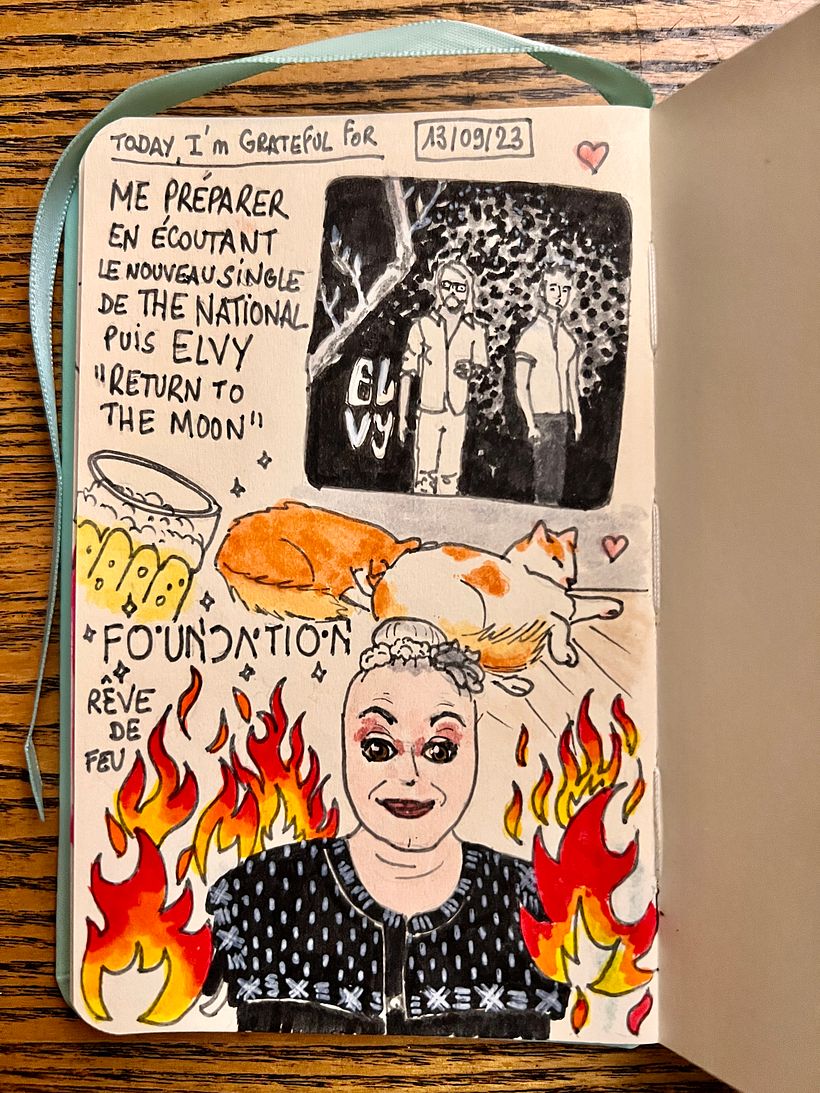 TODAY, I'm GRATEFUL FOR
13/09/23
ME PRÉPARER
EN ÉCOUTANT
LE NOUVEAU SINGLE
DE THE NATIONAL
PUIS ELVY
"RETURN TO
THE MOON"
EL
VY
FOUNDATION
RÊVE
DE
FEU